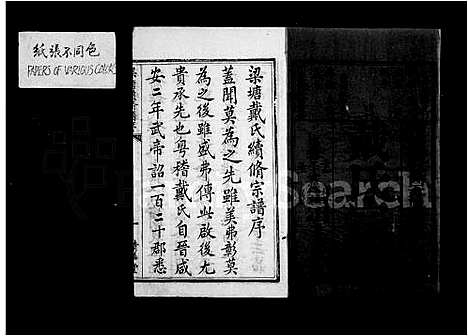 紙張不同色
PAPERS OF VARIOUS COLOR
梁塘戴氏續脩宗譜序
蓋聞莫為之先雖美弗彰莫
為之後雖盛弗傳此啟後尤
貴承先也粵稽戴氏自晉咸
安二年武帝詔一百二十郡悉
Search